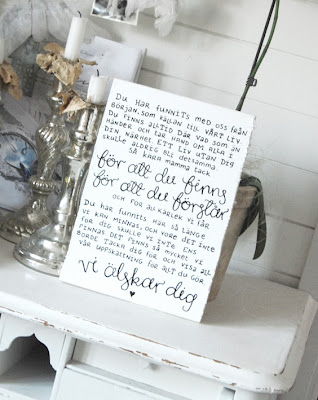 DU HAR FUNNITS MED OSS FRÅN
BÖRJAN, SOM KÄLLAN TILL VÅRT LIV
DU FINNS ALLTID DÄR VAD SOM ÄN
HÄNDER OCH TAR HAND OM ALLA I
DIN NÄRHET. ETT LIV UTAN DIG
SKULLE ALDRIG BLI DETSAMMA.
SÅ KÄRA MAMMA TACK
för att du finns
för att du förstår
OCH FÖR ALL KÄRLEK VI FÅR
DU HAR FUNNITS HÄR SÅ LÄNGE
VI KAN MINNAS, OCH VORE DET INTE
FÖR DIG SKULLE VI INTE ENS
FINNAS. DET FINNS SÅ MYCKET VI
BORDE TACKA DIG FÖR OCH VISA ALL
VÅR UPPSKATTNING FÖR ALLT DU GÖR
vi älskar dig